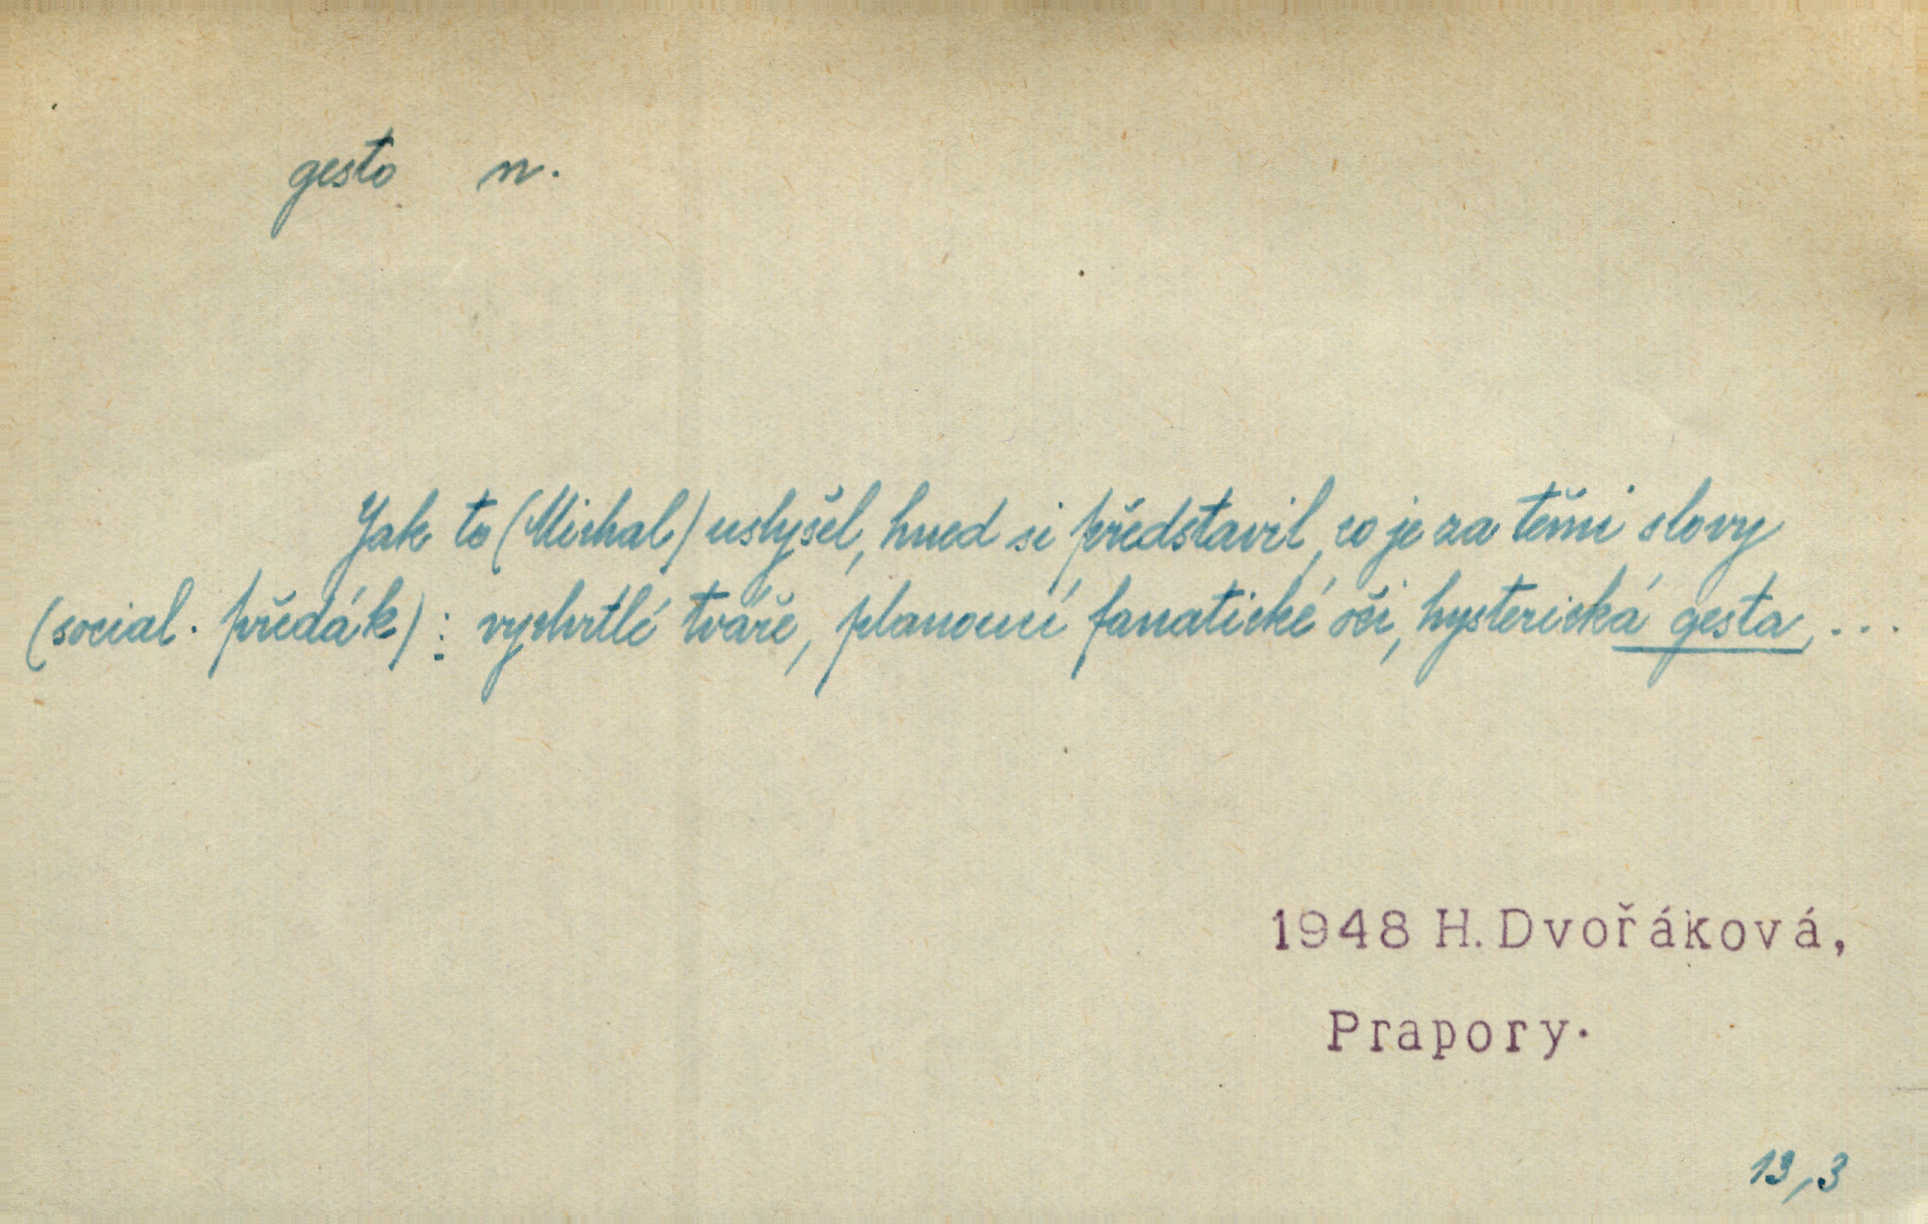 gesto n.
Jak to (Michal) uslyšel, hned si představil, co je za těmi slovy
(social. předák): vychrtlé tváře, planoucí fanatické oči, hysterická gesta, ...
1948 H. Dvořáková,
Prapory.
13,3